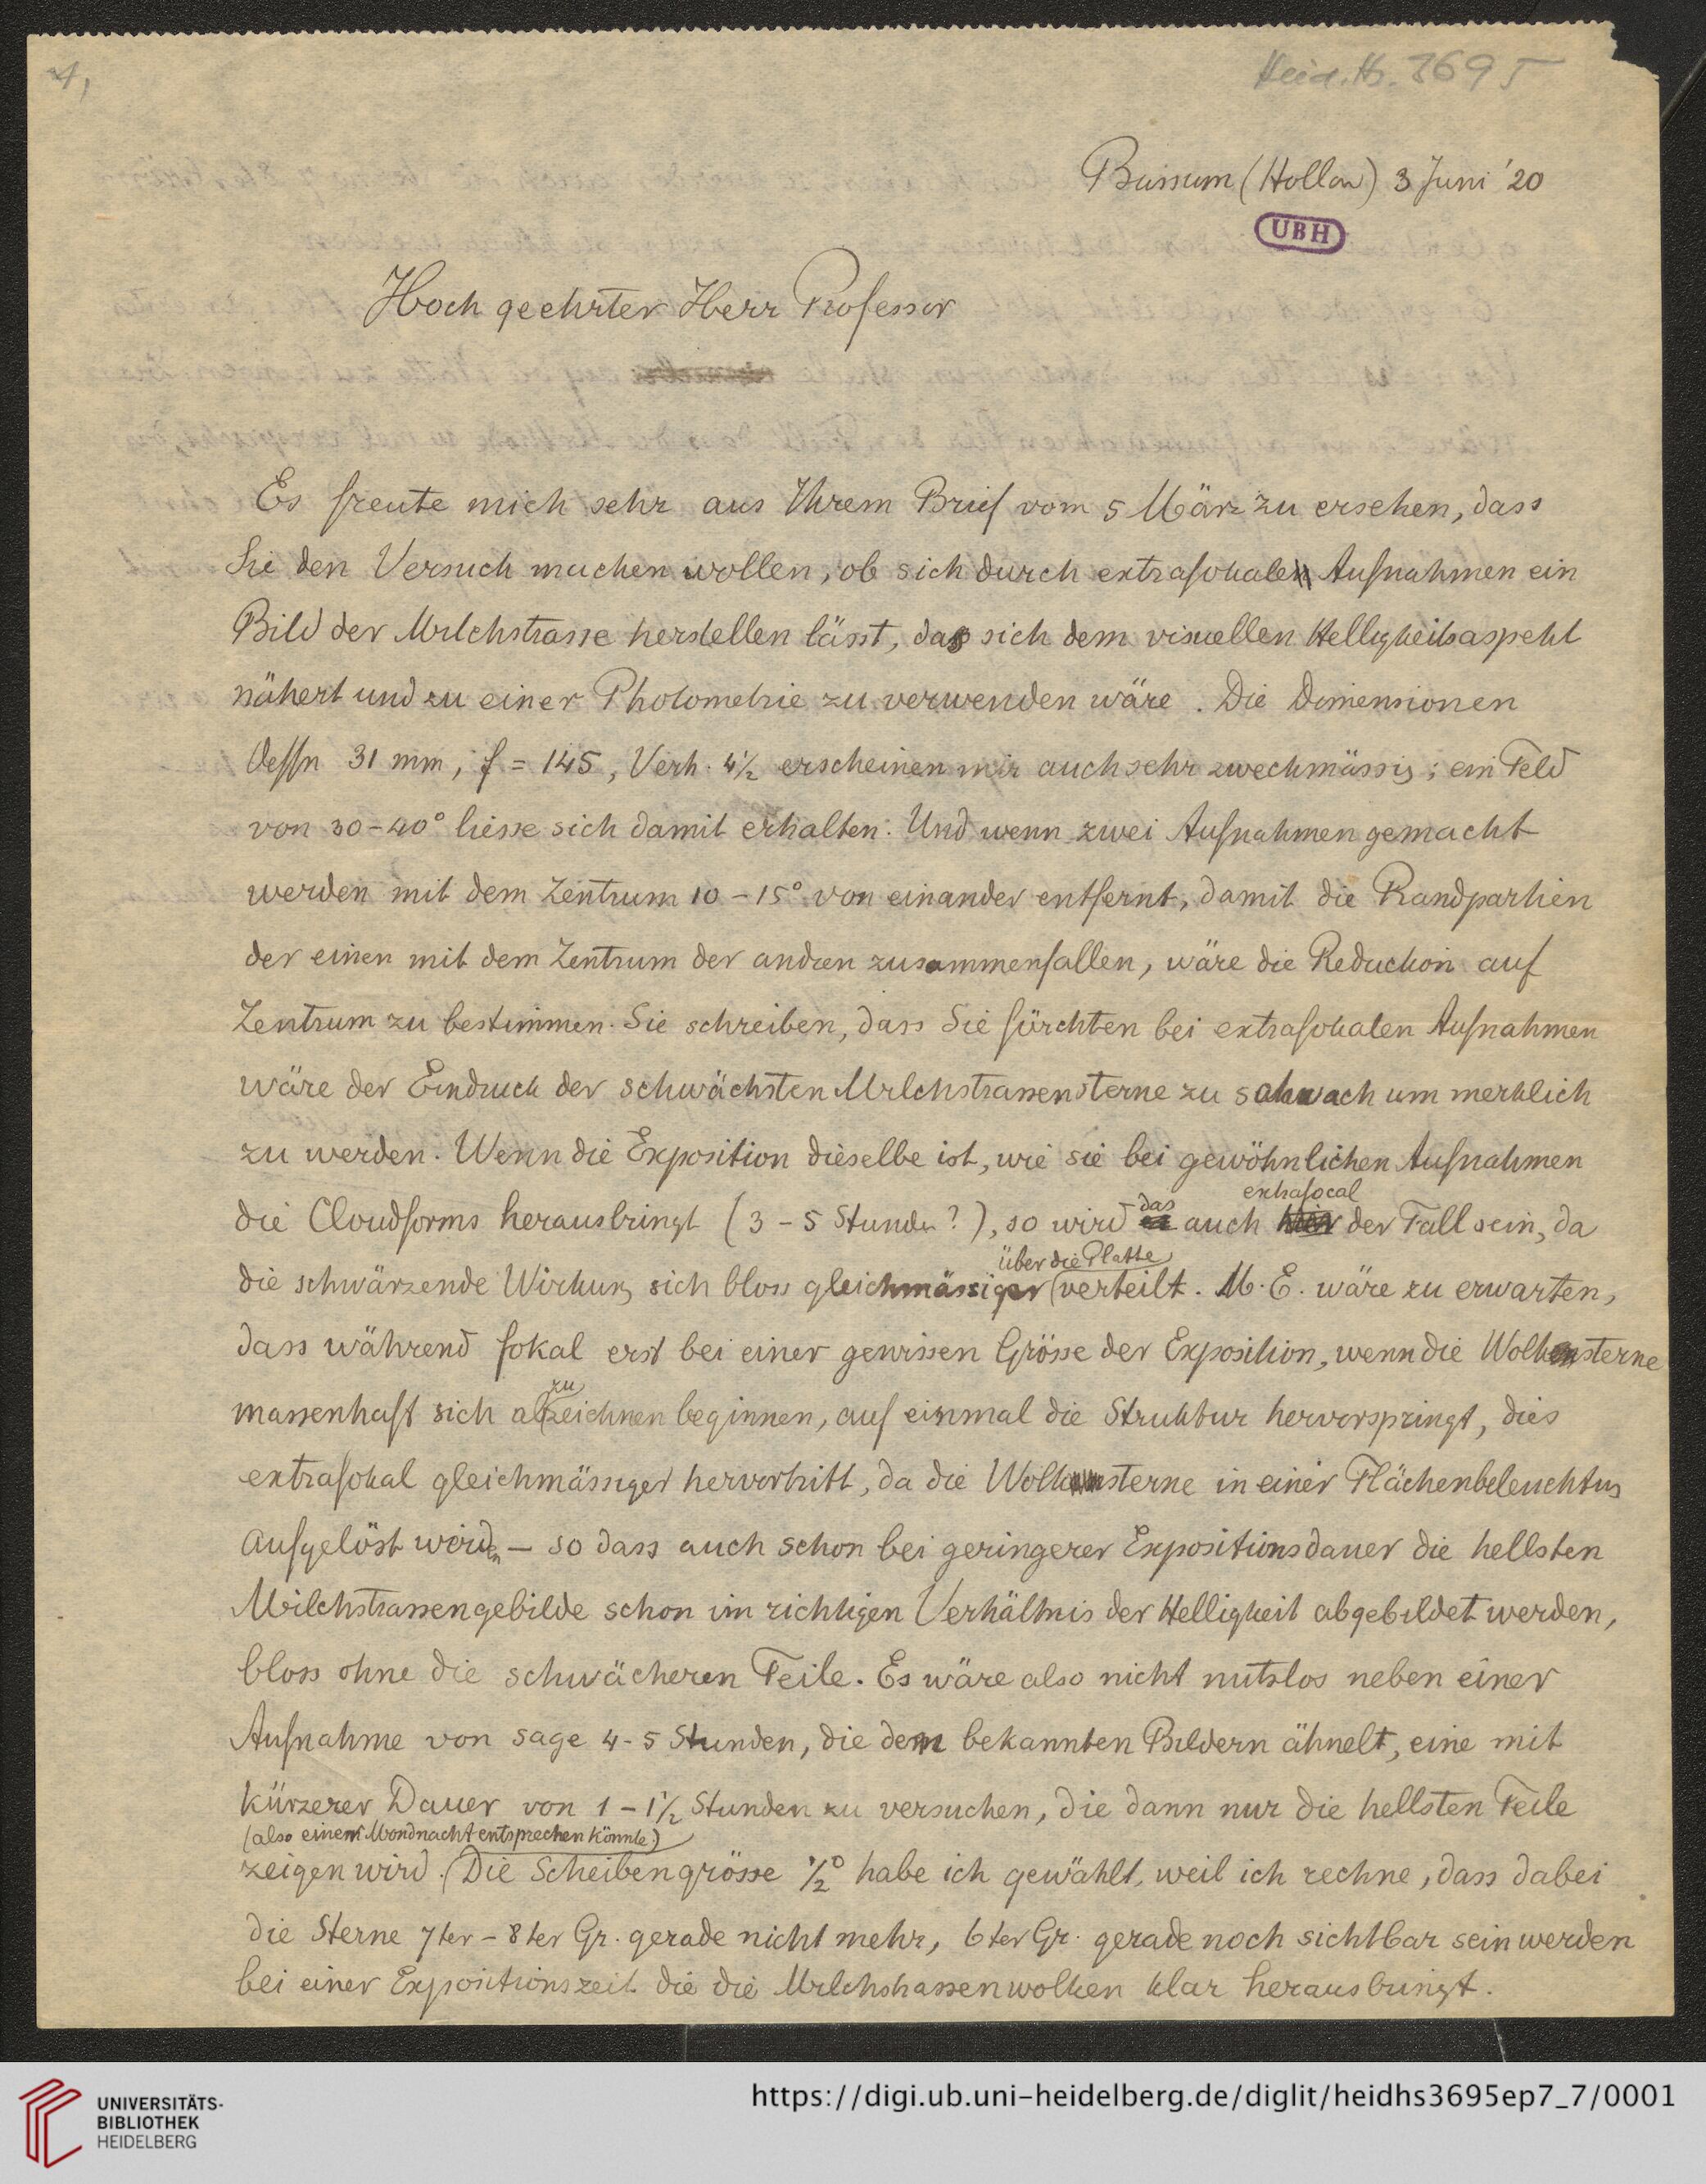 4,
Heid. Hs. 3695
Bussum (Hollan) 3 Juni '20
UBH
Hoch geehrter Herr Professor
Es freute mich sehr aus Ihrem Brief vom 5 März zu ersehen, dass
Sie den Versuch machen wollen, ob sich durch extrafokale Aufnahmen ein
Bild der Milchstrasse herstellen lässt, das sich dem visuellen Helligkeitsaspekt
nähert und zu einer Photometrie zu verwenden wäre. Die Dimensionen
Oeffn 31 mm, f = 145, Verh. 4½ erscheinen mir auch sehr zweckmässig; ein Feld
von 30-40° liesse sich damit erhalten. Und wenn zwei Aufnahmen gemacht
werden mit dem Zentrum 10-15° von einander entfernt, damit die Randpartien
der einen mit dem Zentrum der andren zusammenfallen, wäre die Reduction auf
Zentrum zu bestimmen. Sie schreiben, dass Sie fürchten bei extrafokalen Aufnahmen
wäre der Eindruck der schwächsten Milchstrassensterne zu schwach um merklich
zu werden. Wenn die Exposition dieselbe ist, wie sie bei gewöhnlichen Aufnahmen
die Cloudforms herausbringt (3-5 Stunden?), so wird das auch extrafocal der Fall sein, da
die schwärzende Wirkung sich bloss gleichmässiger über die Platte verteilt. M.E. wäre zu erwarten,
dass während fokal erst bei einer gewissen Grösse der Exposition, wenn die Wolkensterne
massenhaft sich abzuzeichnen beginnen, auf einmal die Struktur hervorspringt, dies
extrafokal gleichmässiger hervortritt, da die Wolkensterne in einer Flächenbeleuchtung
aufgelöst werden — so dass auch schon bei geringerer Expositionsdauer die hellsten
Milchstrassengebilde schon im richtigen Verhältnis der Helligkeit abgebildet werden,
bloss ohne die schwächeren Teile. Es wäre also nicht nutzlos neben einer
Aufnahme von sage 4-5 Stunden, die den bekannten Bildern ähnelt, eine mit
kürzerer Dauer von 1-1½ Stunden zu versuchen, die dann nur die hellsten Teile
zeigen wird. (also einem Mondnacht entsprechen könnte) Die Scheibengrösse ½° habe ich gewählt, weil ich rechne, dass dabei
die Sterne 7ter-8ter Gr. gerade nicht mehr, 6ter Gr. gerade noch sichtbar sein werden
bei einer Expositionszeit die die Milchstrassenwolken klar herausbringt.
UNIVERSITÄTS-
BIBLIOTHEK
HEIDELBERG
https://digi.ub.uni-heidelberg.de/diglit/heidhs3695ep7_7/0001